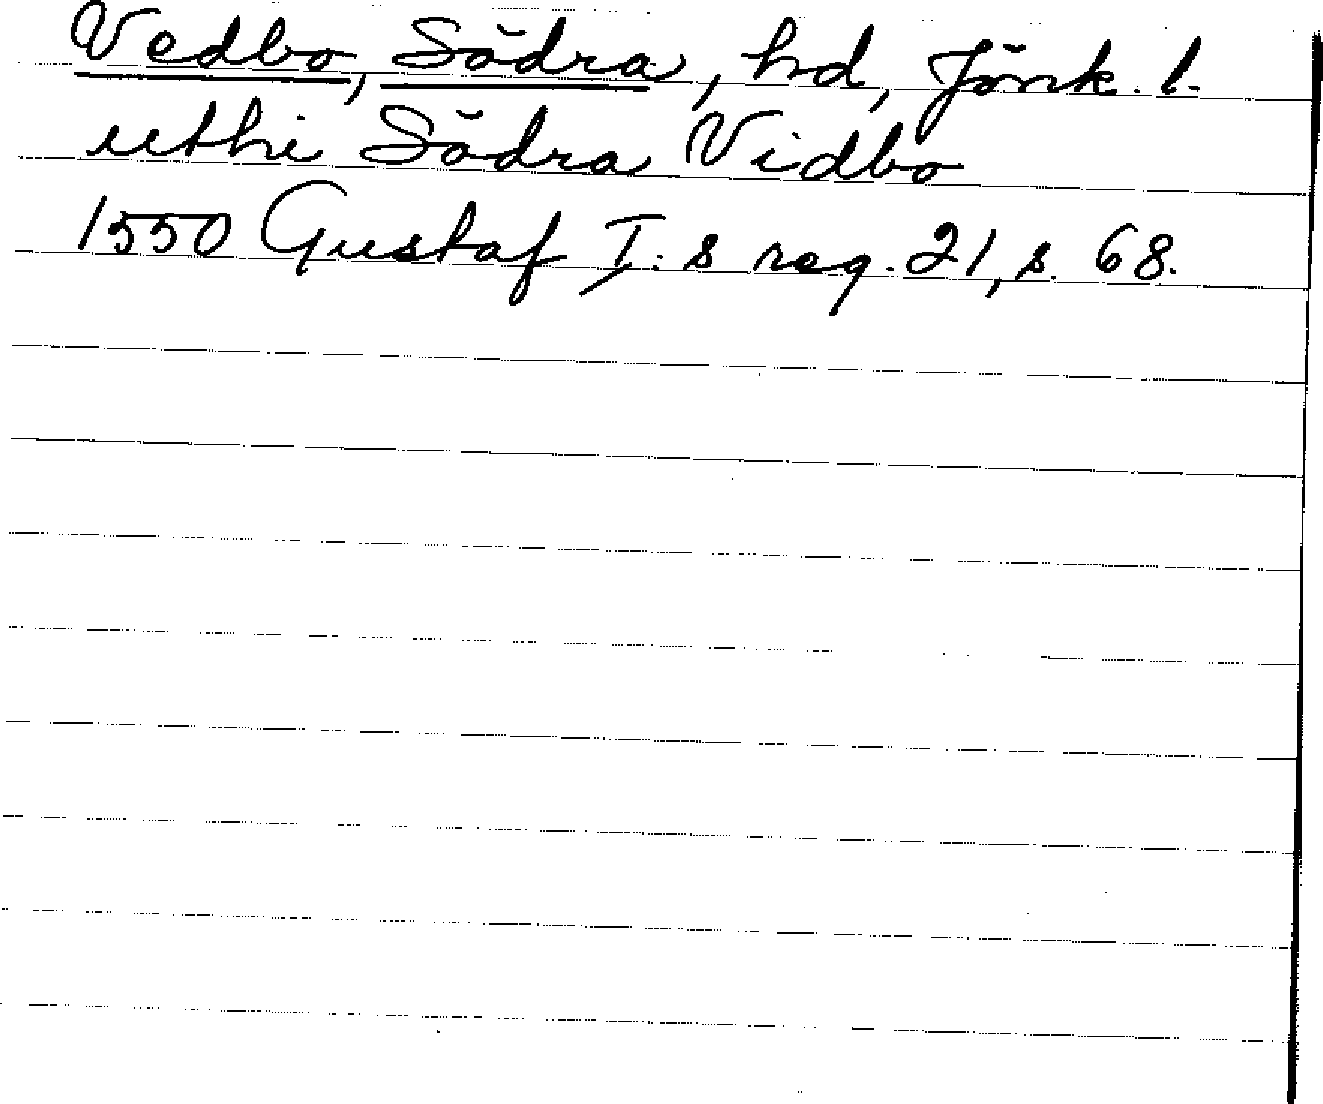 Vedbo, Södra, hd, Jönk. l.
uthi Södra Vidbo
1550 Gustaf I:s reg. 21, s. 68.